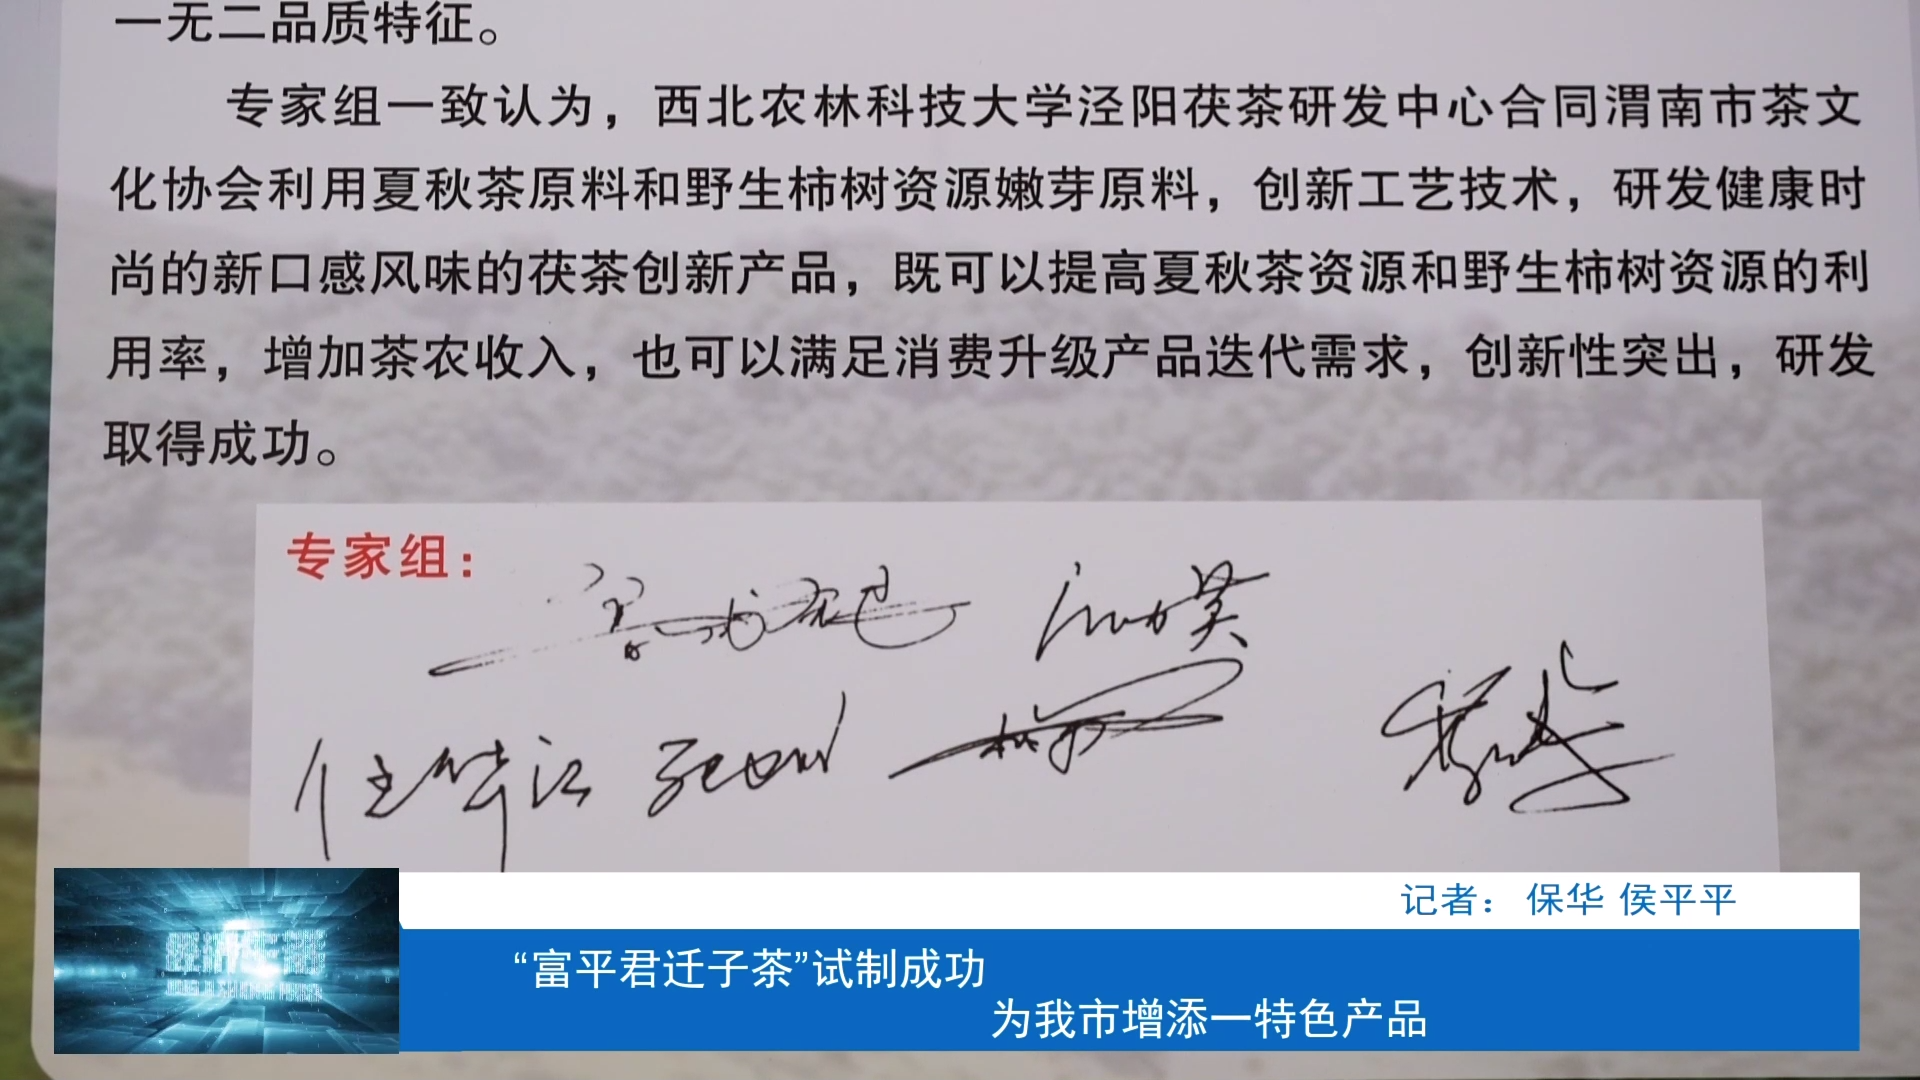 一无二品质特征。
专家组一致认为，西北农林科技大学泾阳茯茶研发中心合同渭南市茶文
化协会利用夏秋茶原料和野生柿树资源嫩芽原料，创新工艺技术，研发健康时
尚的新口感风味的茯茶创新产品，既可以提高夏秋茶资源和野生柿树资源的利
用率，增加茶农收入，也可以满足消费升级产品迭代需求，创新性突出，研发
取得成功。
专家组：
任华江
记者： 保华 侯平平
“富平君迁子茶”试制成功
为我市增添一特色产品